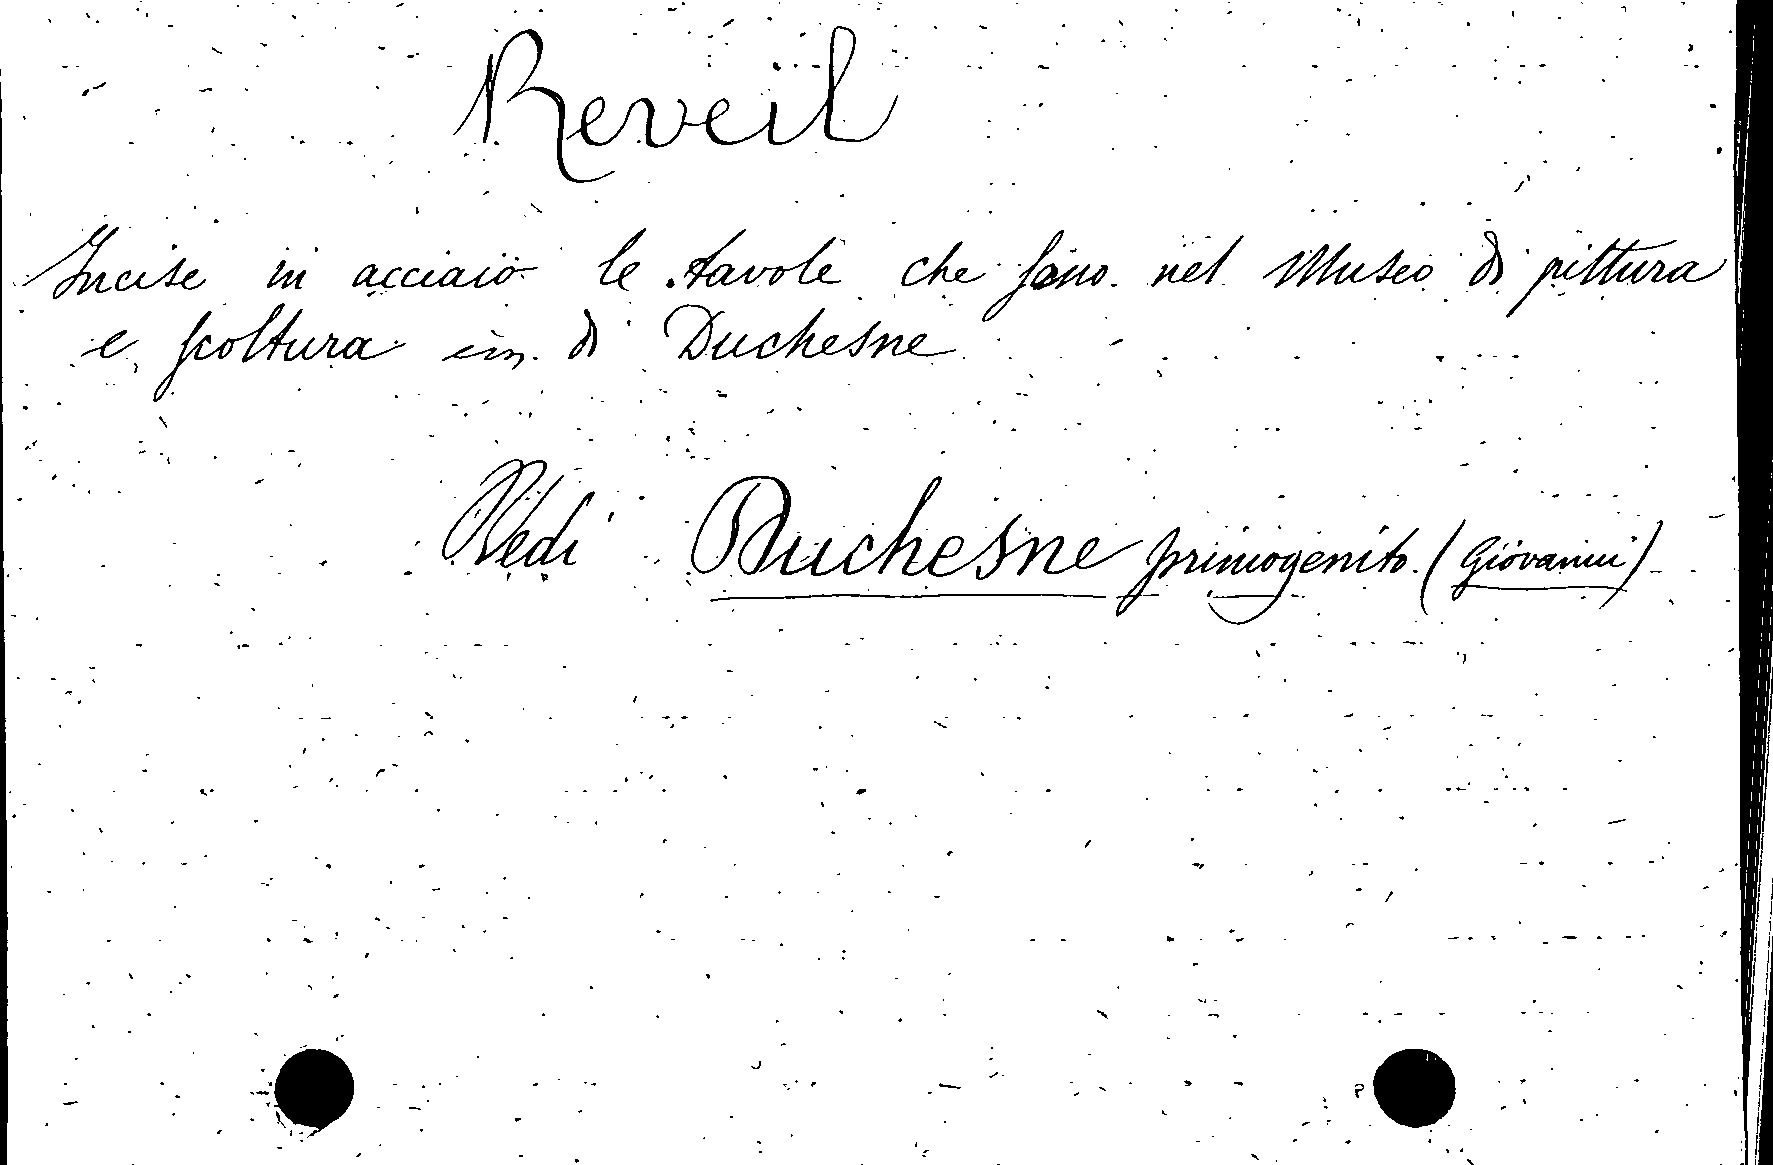 Reveil
Incise in acciaio le tavole che sono nel Museo di pittura
e scoltura di Duchesne
Vedi Duchesne primogenito (Giovanni)